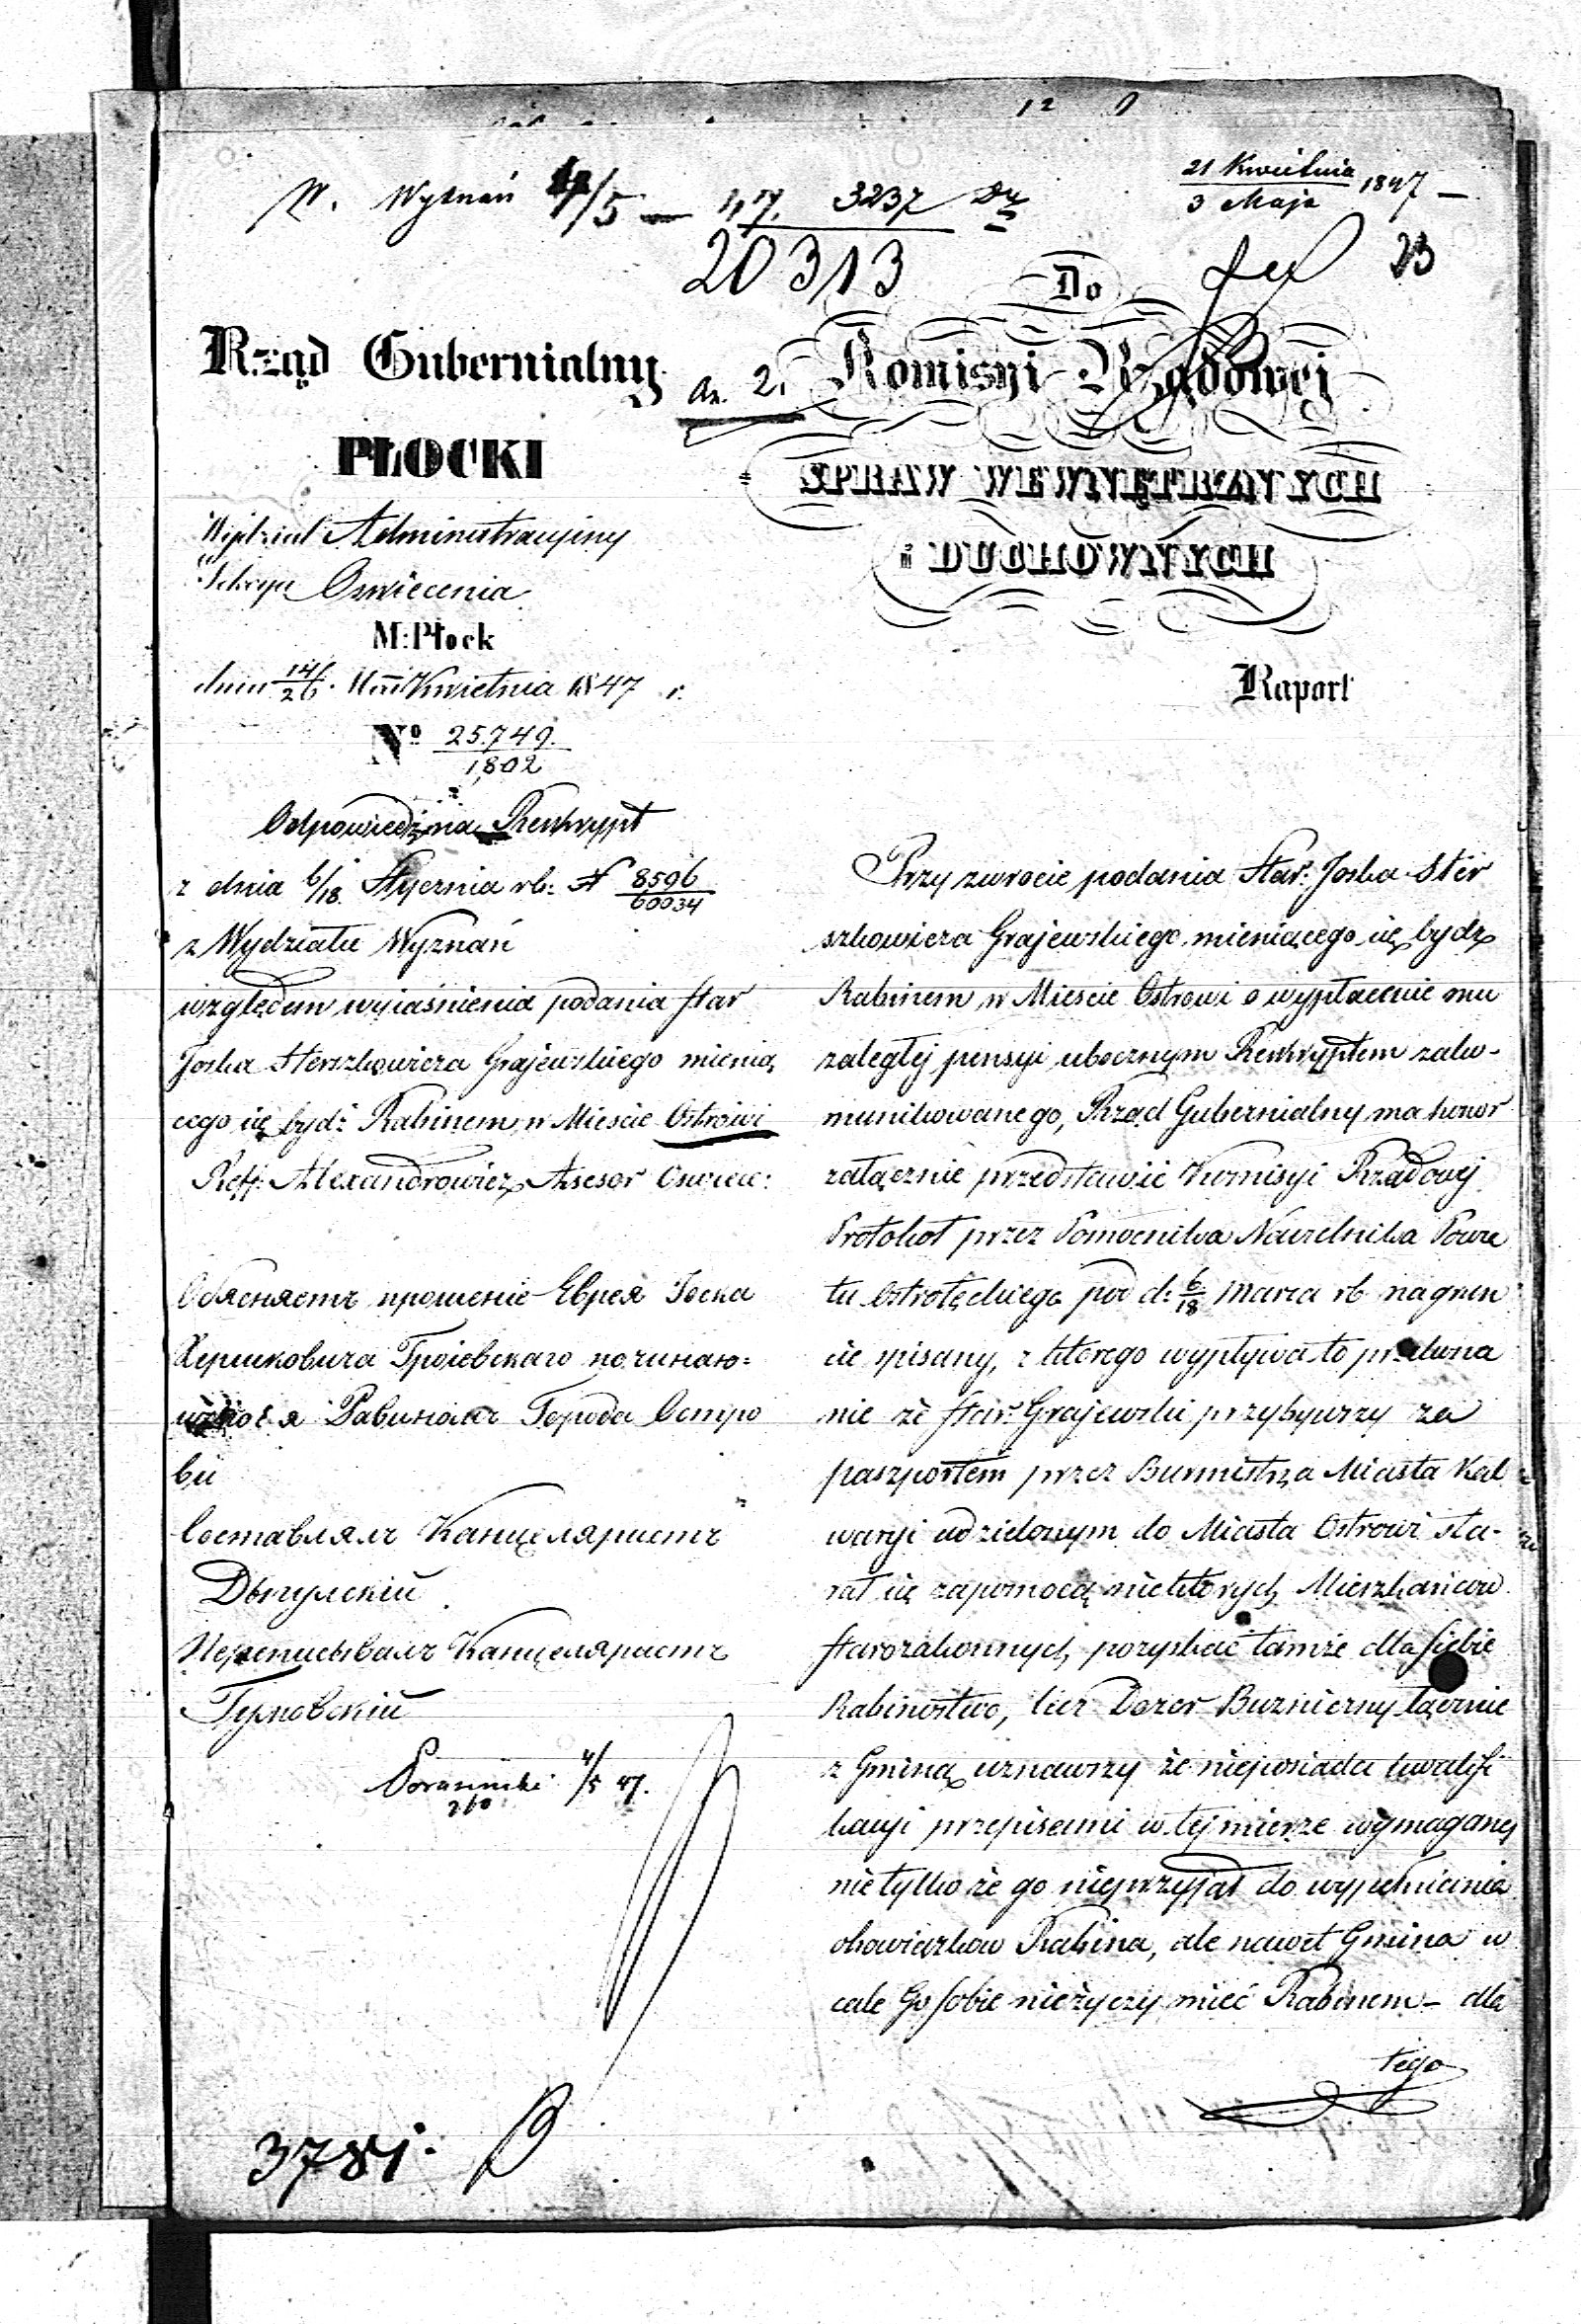 W. Wyznań 4/5 — 3237
21 Kwietnia
3 Maja 1847 —
20313
23
Do
Rząd Gubernialny
an. 2.
Komisyi Rządowej
PŁOCKI
SPRAW WEWNĘTRZNYCH
i DUCHOWNYCH
Wydział Administracyiny
Sekcya Oswiecenia
M: Płock
dnia 14/26 Kwietnia 1847 r.
Raport
No 25.749.
1,802
Odpowiedź na Reskrypt
z dnia 6/18 Stycznia rb: N 8596
60034
z Wydziału Wyznań
względem wyiaśnienia podania Star
Joska Herszkowicza Grajewskiego mienią
cego się bydź Rabinem w Miescie Ostrowi
Reff: Alexandrowicz Assesor Oswiec:
Обясняетъ прошение Еврея Іоска
Хершковича Гроіевскаго
Равиномъ Города Остро
ви
Составлялъ Канцеляристъ
Переписывалъ Канцеляристъ
4/5 47.
260
3784.
Przy zwrocie podania Star: Joska Her
szkowicza Grajewskiego mieniącego się bydź
Rabinem w Miescie Ostrowi o wypłacenie mu
zaległej pensyi ubocznym Reskryptem zako-
munikowanego, Rząd Gubernialny ma honor
załącznie przedstawić Kommisyi Rządowej
Protokoł przez Pomocnika Naczelnika Powia
tu Ostrołęckiego pod d: 6/18 Marca rb na grun
cie spisany, z ktorego wypływa to przekona
nie że Star: Grajewski przybywszy za
paszportem przez Burmistrza Miasta Kal
waryi udzielonym do Miasta Ostrowi sta-
rał się zapomocą niektorych Mieszkańców
Starozakonnych pozyskać tamże dla siebie
Rabinostwo, lecz Dozor Bużniczny łącznie
z Gminą uznawszy że nieposiada kwalifi
kacyi przepisami w tej mierze wymaganej
nie tylko że go nieprzyjął do wypełnienia
obowiązkow Rabina, ale nawet Gmina w
cale Go sobie nieżyczy mieć Rabinem – dla
tego